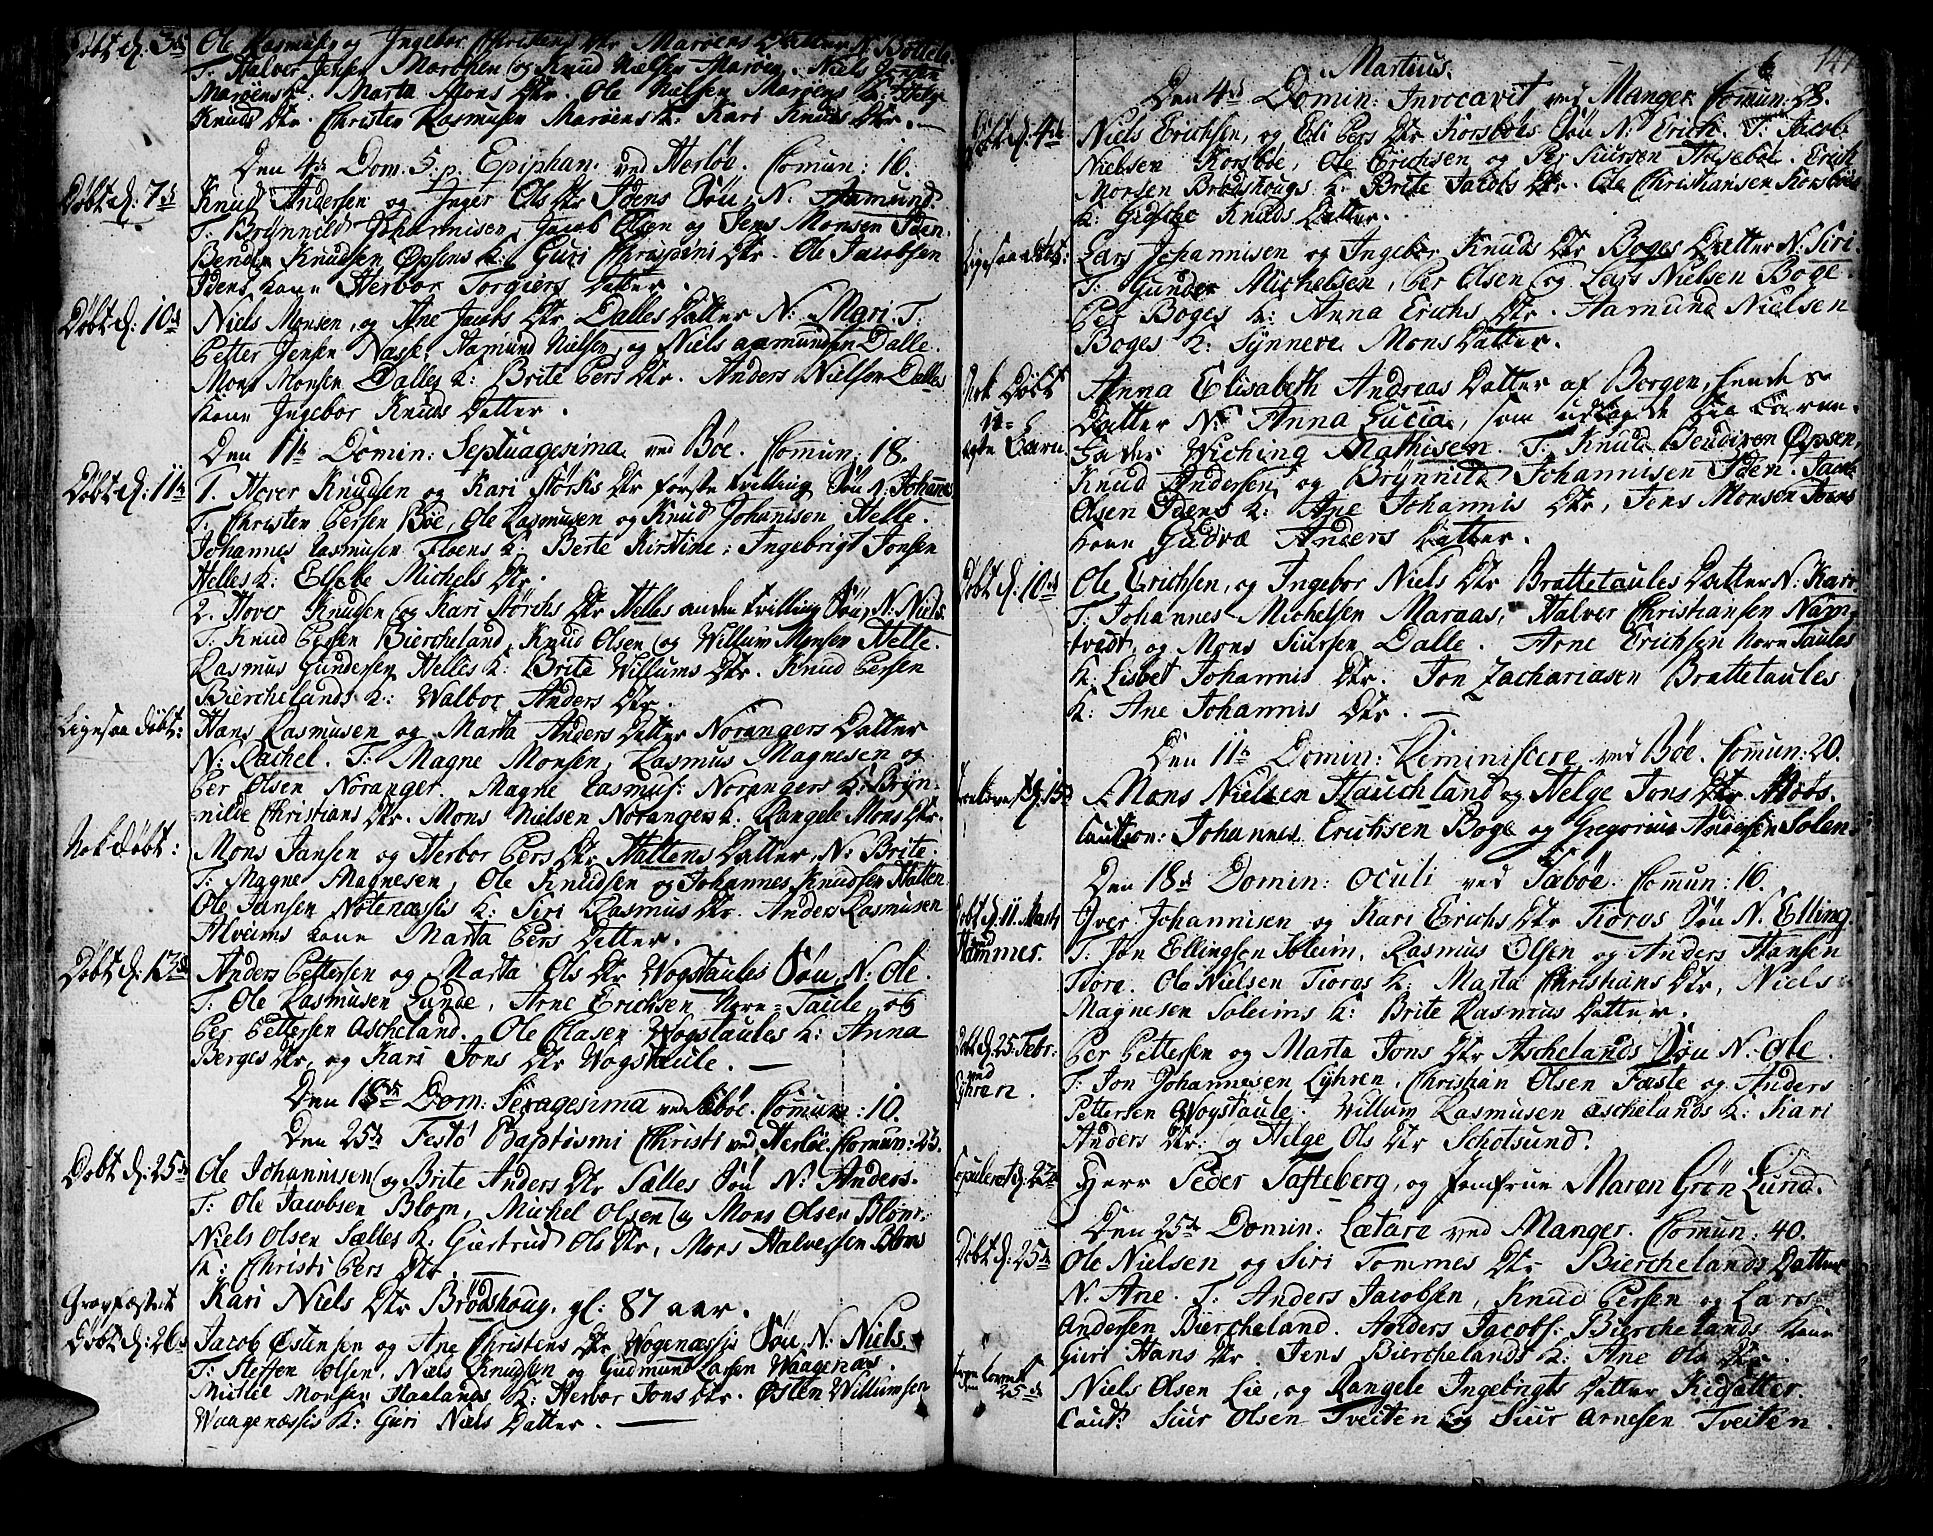 Døbt d: 3de Ole Rasmusen og Ingebor Christens Dtr Marøens Datter N:
T: Halver Jensen Marøen og Knud Nielsen Marøen. Niels Jensen
Marøens K: Marta Mons Dtr. Ole Nielsen Marøens K: Helge
Knuds Dtr. Christen Rasmusen Marøens K: Kari Knuds Dtr.
Den 4de Dom. 5. p. Epiphan: ved Herløe. Comun: 16.
Døbt d: 7de Knud Andersen og Inger Ols Dtr Idens Søn N: Aamund.
T: Brynnild Johannisen, Jacob Olsen og Jens Monsen Iden.
Bendix Knudsen Øpsens K: Guri Christens Dtr. Ole Jacobsen
Idens kone Herbor Torgiers Datter.
Døbt d: 10de Niels Monsen, og Ane Jacobs Dtr Dalles Datter N: Mari. T.
Petter Jensen Nasse, Aamund Nielsen, og Niels Aamundsen Dalle.
Mons Monsen Dalles K: Brite Pers Dtr. Anders Nielsen Dalles
kone Ingebor Knuds Datter.
Den 11te Domin: Septuagesima ved Bøe. Comun: 18.
Døbt d: 11te 1. Hover Knudsen og Kari Størks Dtr første tvilling Søn N: Johannes
T: Christen Persen Bøe, Ole Rasmusen og Knud Johannisen Helle.
Johannes Rasmusen Floens K: Berte Kirstine; Ingebrigt Jonsen
Helles K: Elsebe Michels Dtr.
2. Hover Knudsen og Kari Størchs Dtr Helles anden tvilling Søn N: Niels.
T: Knud Persen Biercheland, Knud Olsen og Willum Monsen Helle.
Rasmus Gundersen Helles K: Brite Willums Dtr. Knud Persen
Bierchelands K: Walbor Anders Dtr.
Ligesaa døbt: Hans Rasmusen og Marta Anders Datter Norangers Datter
N: Rachel. T: Magne Monsen, Rasmus Magnesen og
Per Olsen Noranger. Magne Rasmus: Norangers K: Bryn-
nilde Christians Dtr. Mons Nielsen Norangers K: Rangele Mons Dtr.
Nok døbt: Mons Jansen og Herbor Pers Dtr Haltens Datter, N: Brite.
T: Magne Magnesen, Ole Knudsen og Johannes Knudsen Halten
Ole Jansen Notenæssis K: Siri Rasmus Dtr. Anders Rasmusen
Alveims kone Marta Pers Datter.
Døbt d: 17de Anders Pettersen og Marta Ols Dtr Wogstaules Søn N: Ole.
T: Ole Rasmusen Lunde, Arne Erichsen Horn-Taule og
Per Pettersen Ascheland. Ole Clasen Wogstaules K: Anna
Berges Dtr, og Kari Jons Dtr Wogstaule.
Den 18de Dom: Sexagesima ved Sæbøe. Comun: 10.
Den 25de Festo Baptismi Christi ved Herløe. Comun: 23.
Døbt d: 25de Ole Johannisen og Brite Anders Dtr Sælles Søn N: Anders.
T: Ole Jacobsen Blom, Michel Olsen og Mons Olsen Blom.
Niels Olsen Sælles K: Giertrud Ols Dtr, Mons Halversen Bloms
K: Christi Pers Dtr.
Gravfæstet Kari Niels Dtr Brødshoug, gl: 87 aar.
Døbt d: 26de Jacob Østensen og Ane Christens Dtr Wogenæssis Søn N: Niels.
T: Steffen Olsen, Niels Knudsen og Gudmund Larsen Waagenæs.
Michel Monsen Haalands K: Herbor Jons Dtr. Østen Willumsen
Waagenæssis K: Guri Niels Datter.
Martius. 147
Den 4de Domin: Invocavit ved Manger Comun: 28.
Døbt d: 4de Niels Erichsen, og Eli Pers Dtr Korsbøes Søn N: Erich. T: Jacob
Nielsen Korsbøe, Ole Erichsen og Per Siursen Halsebøe. Erich
Monsen Brødshougs K: Brite Jacobs Dtr. Ole Christiansen Korsbøes
K: Gidsche Knuds Datter.
Ligesaa døbt: Lars Johannisen og Ingebor Knuds Dtr Boges Datter N: Siri
T: Gunder Michelsen, Per Olsen og Lars Nielsen Boge.
Per Boges K: Anna Erichs Dtr. Aamund Nielsen
Boges K: Synneve Mons Datter.
Nok Døbt Anna Elisabeth Andreas Datter af Bergen, hendes
u- Datter N: Anna Lucia, som udlagde til Barne-
ægte Barn Fader Wiching Mathisen. T. Knud Bendixen Øpsen,
Knud Andersen og Brynnild Johannisen Iden. Jacob
Olsen Idens K: Ane Johannis Dtr, Jens Monsen Idens
kone Gudvæ Anders Datter.
Døbt d: 10de Ole Erichsen, og Ingebor Niels Dtr Brattetaules Datter N: Kari
T: Johannes Michelsen Maraas, Halver Christiansen Nam-
tvedt, og Mons Siursen Dalle. Arne Erichsen Horn Taules
K: Lisbet Johannis Dtr. Jon Zachariasen Brattetaules
K: Ane Johannis Dtr.
Den 11te Domin: Reminiscere ved Bøe. Comun: 20.
Trolovet d: 15de Mons Nielsen Hauchland og Helge Jons Dtr
Caution: Johannes Erichsen Boge og Gregorius Andersen Solem.
Den 18de Domin: Oculi ved Sæbøe. Comun: 16.
Døbt d. 11. Marti Iver Johannisen og Kari Erichs Dtr Tioras Søn N. Elling.
Hammer. T: Jon Ellingsen Soleim, Rasmus Olsen og Anders Hansen
Tiore. Ole Nielsen Tioras K: Marta Christians Dtr, Niels
Magnesen Soleims K: Brite Rasmus Datter.
Døbt d: 25. Febr: Per Pettersen og Marta Jons Dtr Aschelands Søn N: Ole.
ved Lyhren. T: Jon Johannesen Lyhren, Christian Olsen Fæste og Anders
Pettersen Wogstaule. Willum Rasmusen Aschelands K: Kari
Anders Dtr: og Helge Ols Dtr Schotsund.
Copuleret d. 22de Herr Peder Tafteberg, og Jomfrue Maren Grøn Lund.
Den 25de Domin: Lætare ved Manger. Comun: 40.
Døbt d: 25de Ole Nielsen og Siri Tommes Dtr Bierchelands Datter
N. Ane. T. Anders Jacobsen, Knud Persen og Lars
Andersen Biercheland. Anders Jacobs: Bierchelands kone
Guri Hans Dtr. Jens Bierchelands K: Ane Ols Dtr.
Trolovet den 25de Niels Olsen Lie, og Rangele Ingebrigts Datter Kidsætter.
Caut: Siur Olsen Tveiten og Siur Arnesen Tveiten.